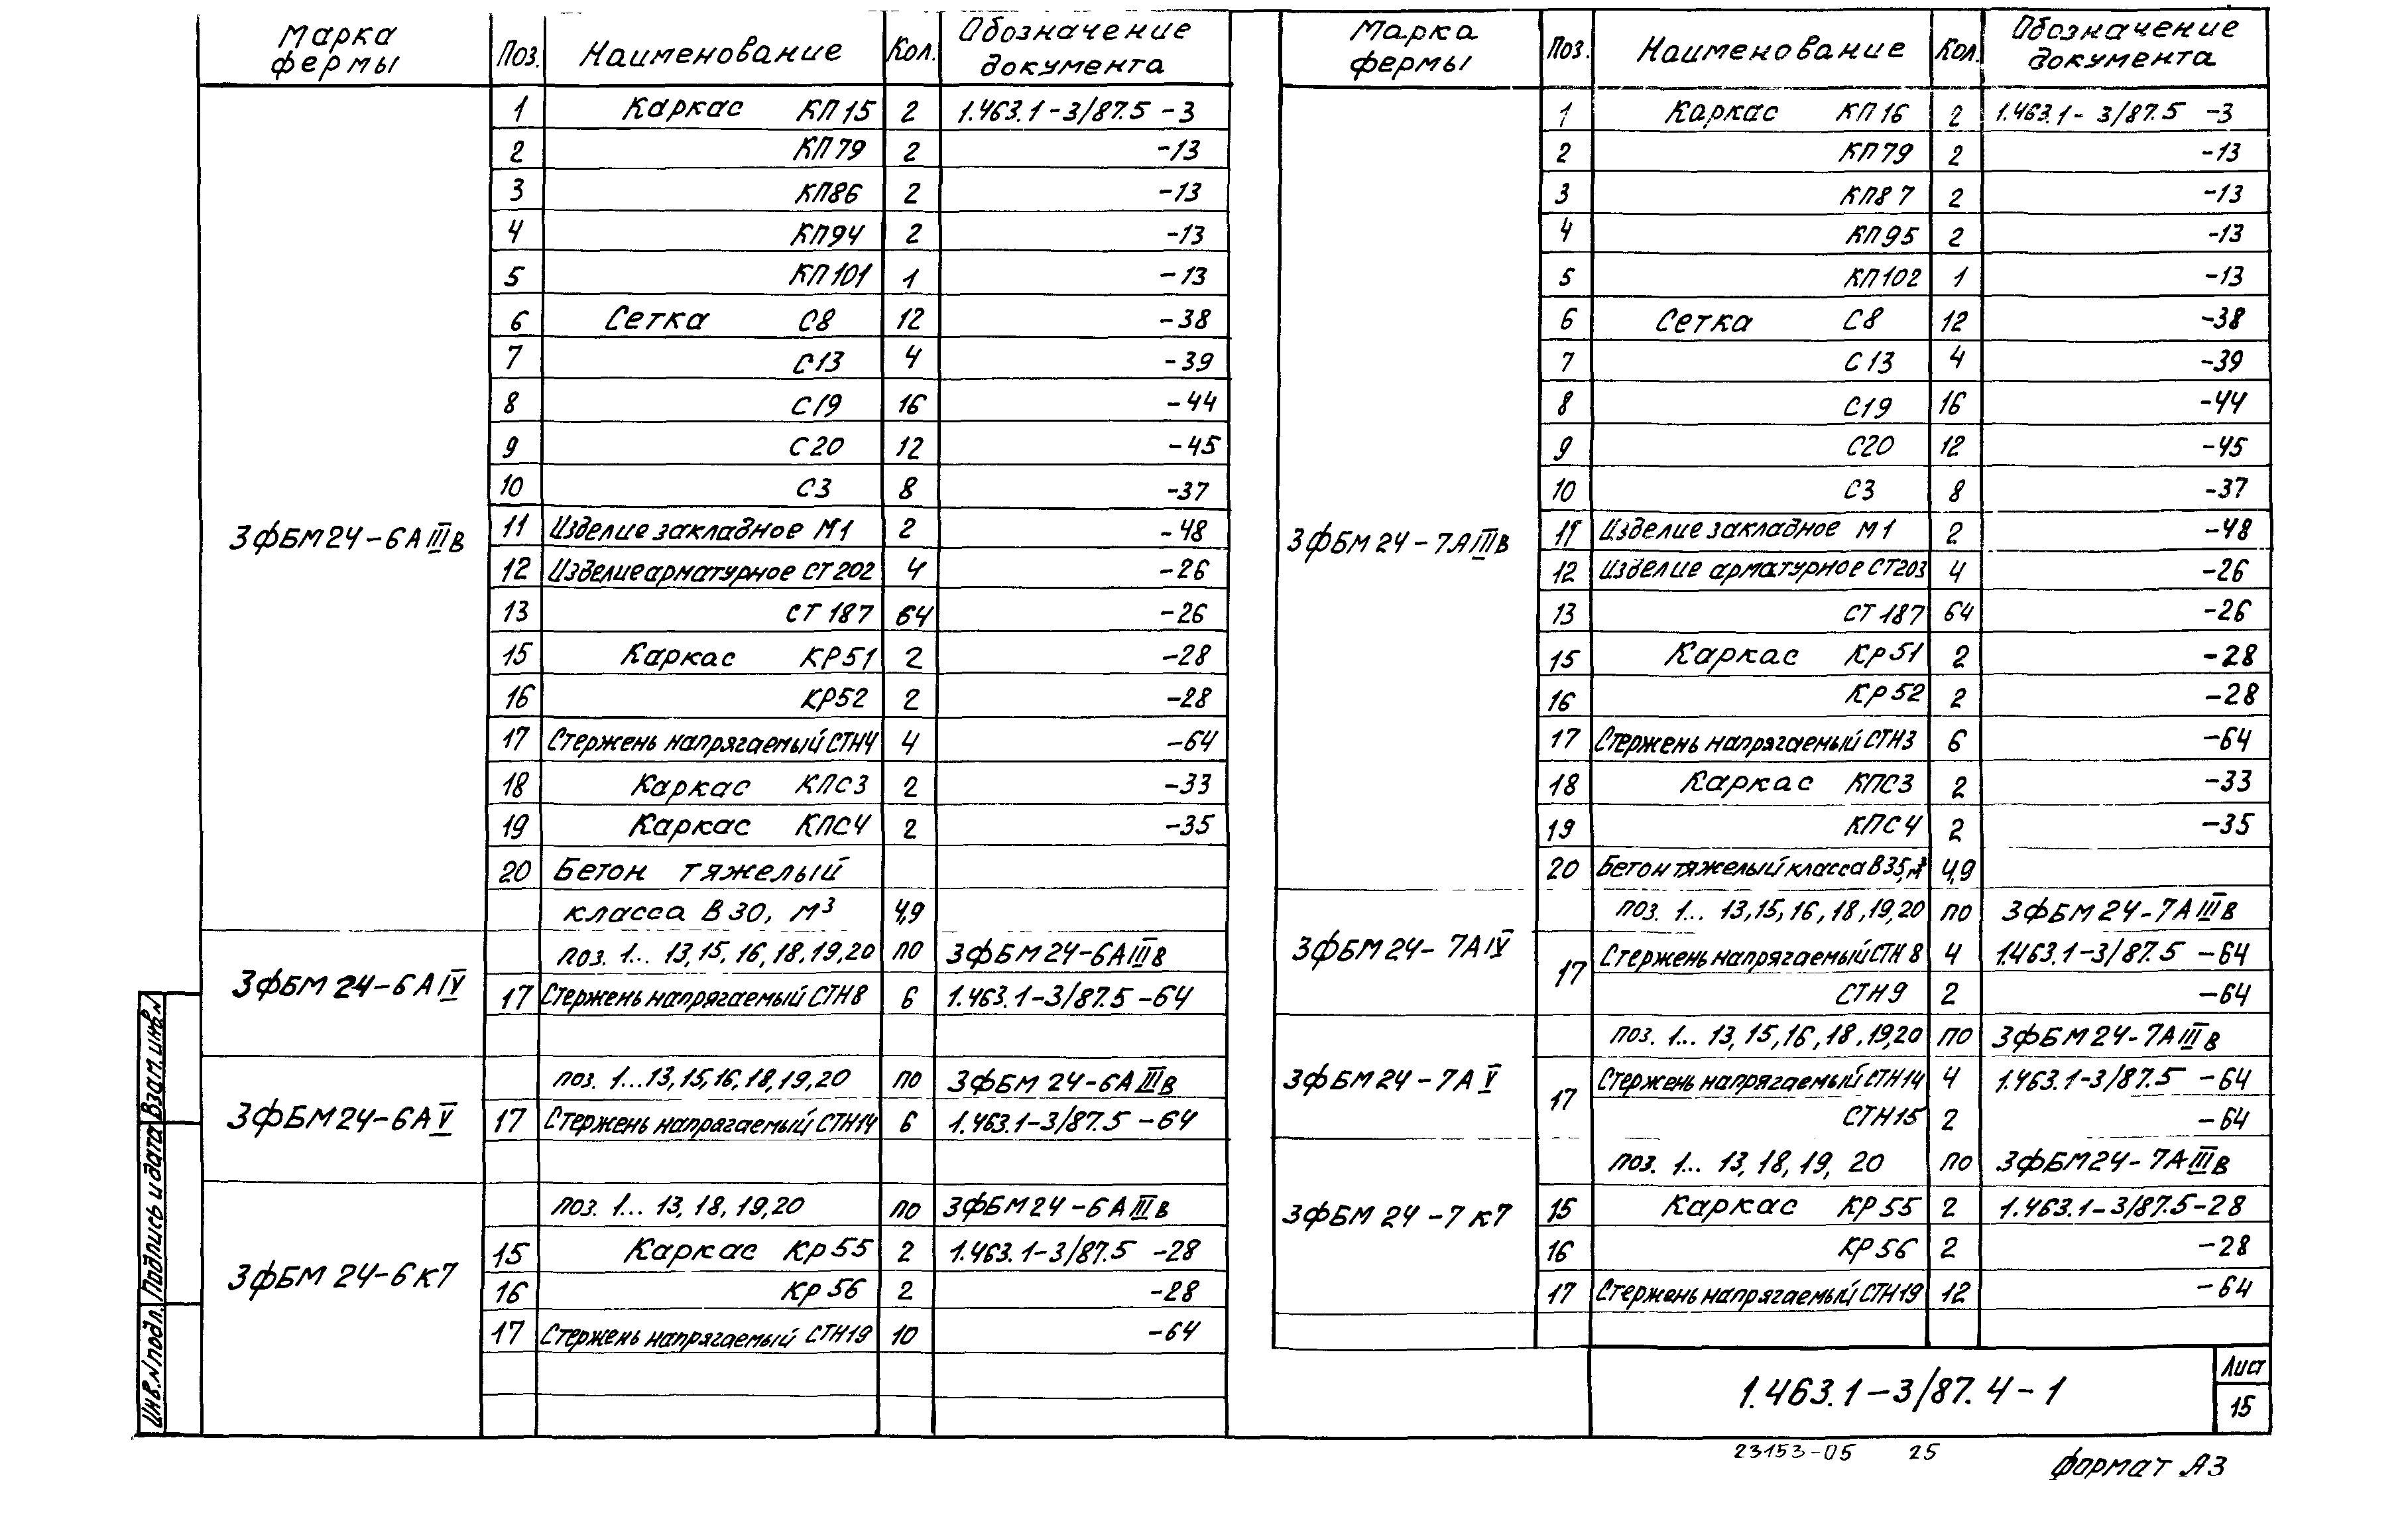 Марка фермы Поз. Наименование Кол. Обозначение документа
1 Каркас КП15 2 1.463.1-3/87.5 -3
2 КП79 2 -13
3 КП86 2 -13
4 КП94 2 -13
5 КП101 1 -13
6 Сетка С8 12 -38
7 С13 4 -39
8 С19 16 -44
9 С20 12 -45
10 С3 8 -37
3ФБМ24-6АIIIв 11 Изделие закладное М1 2 -48
12 Изделие арматурное СТ202 4 -26
13 СТ187 64 -26
15 Каркас КР51 2 -28
16 КР52 2 -28
17 Стержень напрягаемый СТН4 4 -64
18 Каркас КПС3 2 -33
19 Каркас КПС4 2 -35
20 Бетон тяжелый
класса В30, м³ 4,9
поз. 1... 13, 15, 16, 18, 19, 20 по 3ФБМ24-6АIIIв
3ФБМ24-6АIV 17 Стержень напрягаемый СТН8 6 1.463.1-3/87.5 -64
поз. 1...13, 15, 16, 18, 19, 20 по 3ФБМ24-6АIIIв
3ФБМ24-6АV 17 Стержень напрягаемый СТН14 6 1.463.1-3/87.5 -64
поз. 1... 13, 18, 19, 20 по 3ФБМ24-6АIIIв
15 Каркас Кр55 2 1.463.1-3/87.5 -28
3ФБМ24-6К7 16 Кр56 2 -28
17 Стержень напрягаемый СТН19 10 -64
Марка фермы Поз. Наименование Кол. Обозначение документа
1 Каркас КП16 2 1.463.1-3/87.5 -3
2 КП79 2 -13
3 КП87 2 -13
4 КП95 2 -13
5 КП102 1 -13
6 Сетка С8 12 -38
7 С13 4 -39
8 С19 16 -44
9 С20 12 -45
10 С3 8 -37
3ФБМ24-7АIIIв 11 Изделие закладное М1 2 -48
12 Изделие арматурное СТ203 4 -26
13 СТ187 64 -26
15 Каркас КР51 2 -28
16 КР52 2 -28
17 Стержень напрягаемый СТН3 6 -64
18 Каркас КПС3 2 -33
19 КПС4 2 -35
20 Бетон тяжелый класса В35, м³ 4,9
поз. 1... 13, 15, 16, 18, 19, 20 по 3ФБМ24-7АIIIв
3ФБМ24-7АIV 17 Стержень напрягаемый СТН8 4 1.463.1-3/87.5 -64
СТН9 2 -64
поз. 1... 13, 15, 16, 18, 19, 20 по 3ФБМ24-7АIIIв
3ФБМ24-7АV 17 Стержень напрягаемый СТН14 4 1.463.1-3/87.5 -64
СТН15 2 -64
поз. 1... 13, 18, 19, 20 по 3ФБМ24-7АIIIв
3ФБМ24-7К7 15 Каркас КР55 2 1.463.1-3/87.5-28
16 КР56 2 -28
17 Стержень напрягаемый СТН19 12 -64
Инв.№подл. Подпись и дата Взам.инв.№
1.463.1-3/87.4-1 Лист
15
23153-05 25
Формат А3